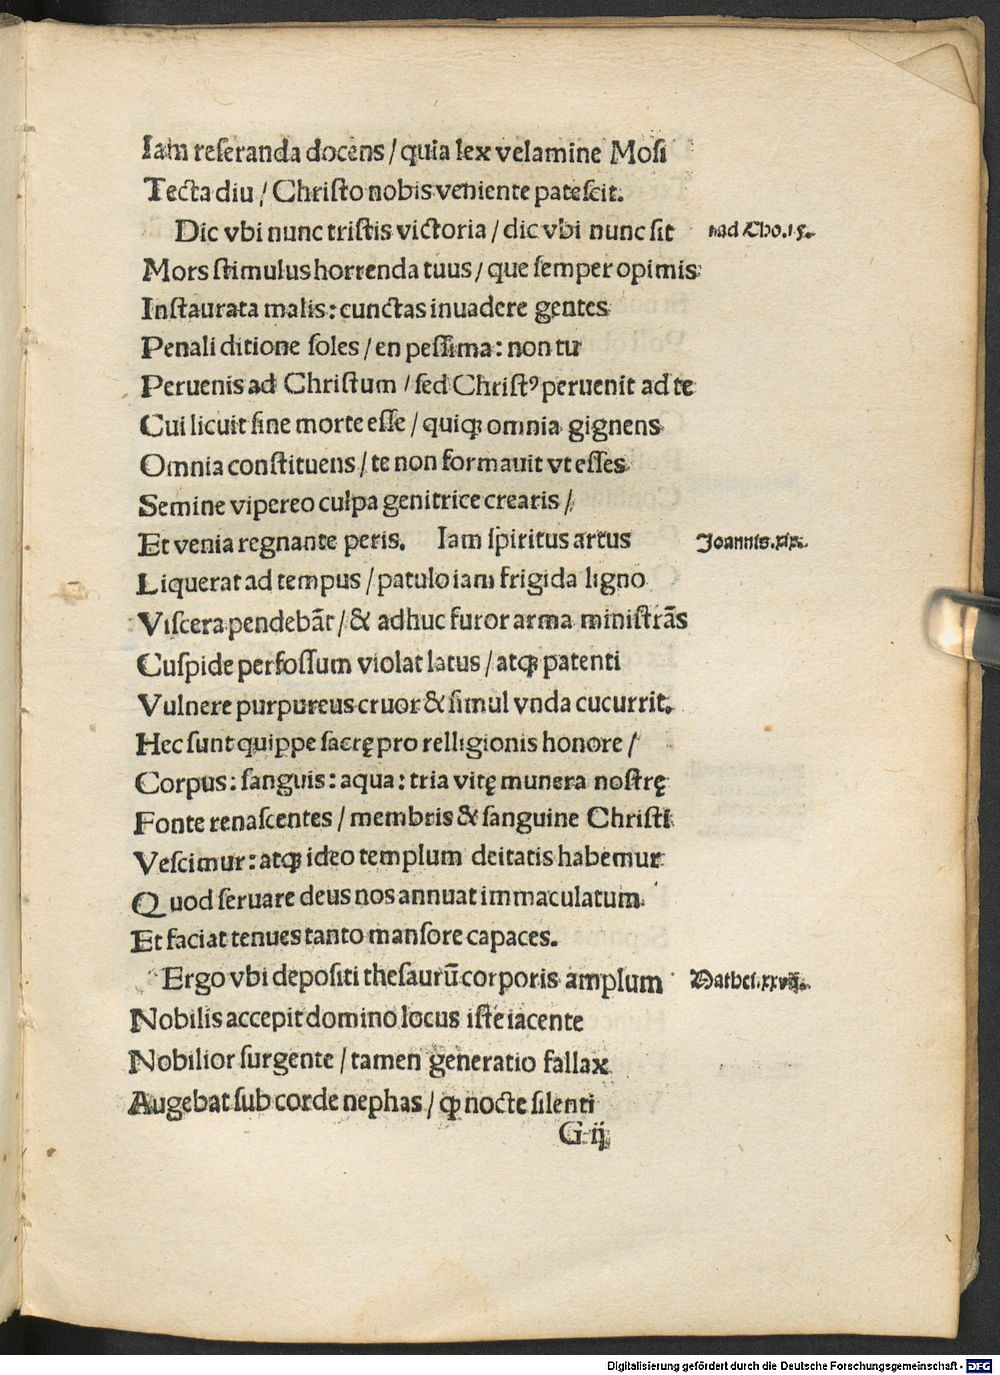 Iam reſeranda docens / quia lex velamine Moſi
Tecta diu / Chriſto nobis veniente pateſcit.
Dic vbi nunc triſtis victoria / dic vbi nunc ſit ad Cho.15.
Mors ſtimulus horrenda tuus / que ſemper opimis
Inſtaurata malis: cunctas inuadere gentes
Penali ditione ſoles / en peſſima: non tu
Peruenis ad Chriſtum / ſed Chriſtꝰ peruenit ad te
Cui licuit ſine morte eſſe / quiqꝫ omnia gignens
Omnia conſtituens / te non formauit vt eſſes
Semine vipereo culpa genitrice crearis /
Et venia regnante peris. Iam ſpiritus artus Joannis.xix.
Liquerat ad tempus / patulo iam frigida ligno
Viſcera pendebāt / & adhuc furor arma miniſtrās
Cuſpide perfoſſum violat latus / atqꝫ patenti
Vulnere purpureus cruor & ſimul vnda cucurrit.
Hec ſunt quippe ſacrę pro relligionis honore /
Corpus: ſanguis: aqua: tria vitę munera noſtrę
Fonte renaſcentes / membris & ſanguine Chriſti
Veſcimur: atqꝫ ideo templum deitatis habemur
Quod ſeruare deus nos annuat immaculatum
Et faciat tenues tanto manſore capaces.
Ergo vbi depoſiti theſaurū corporis amplum Mathei.xxvij.
Nobilis accepit domino locus iſte iacente
Nobilior ſurgente / tamen generatio fallax
Augebat ſub corde nephas / ꝙ nocte ſilenti
G ij
Digitalisierung gefördert durch die Deutsche Forschungsgemeinschaft - DFG